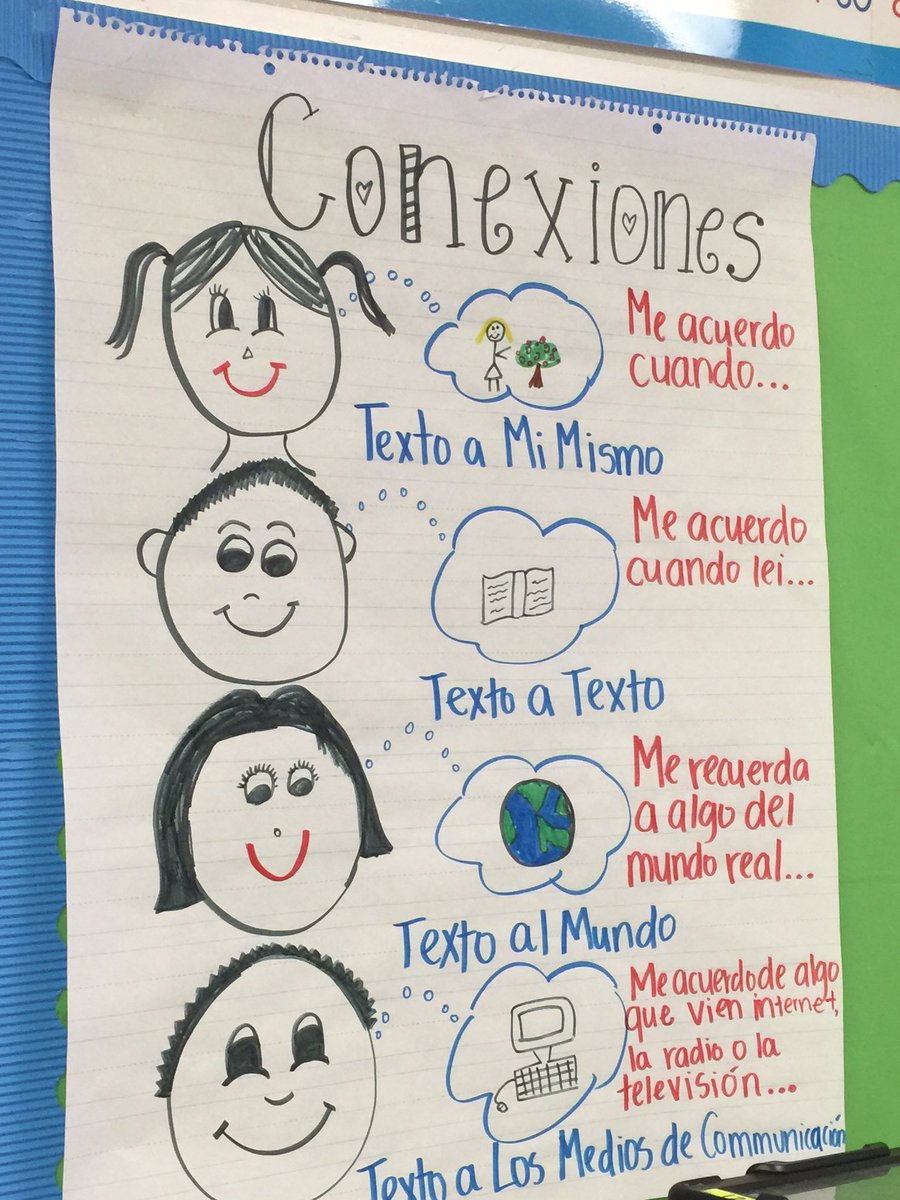 Conexiones
Me acuerdo
cuando...
Texto a Mi Mismo
Me acuerdo
cuando lei...
Texto a Texto
Me recuerda
a algo del
mundo real...
Texto al Mundo
Me acuerdo de algo
que vien internet,
la radio o la
televisión...
Texto a Los Medios de Communicación